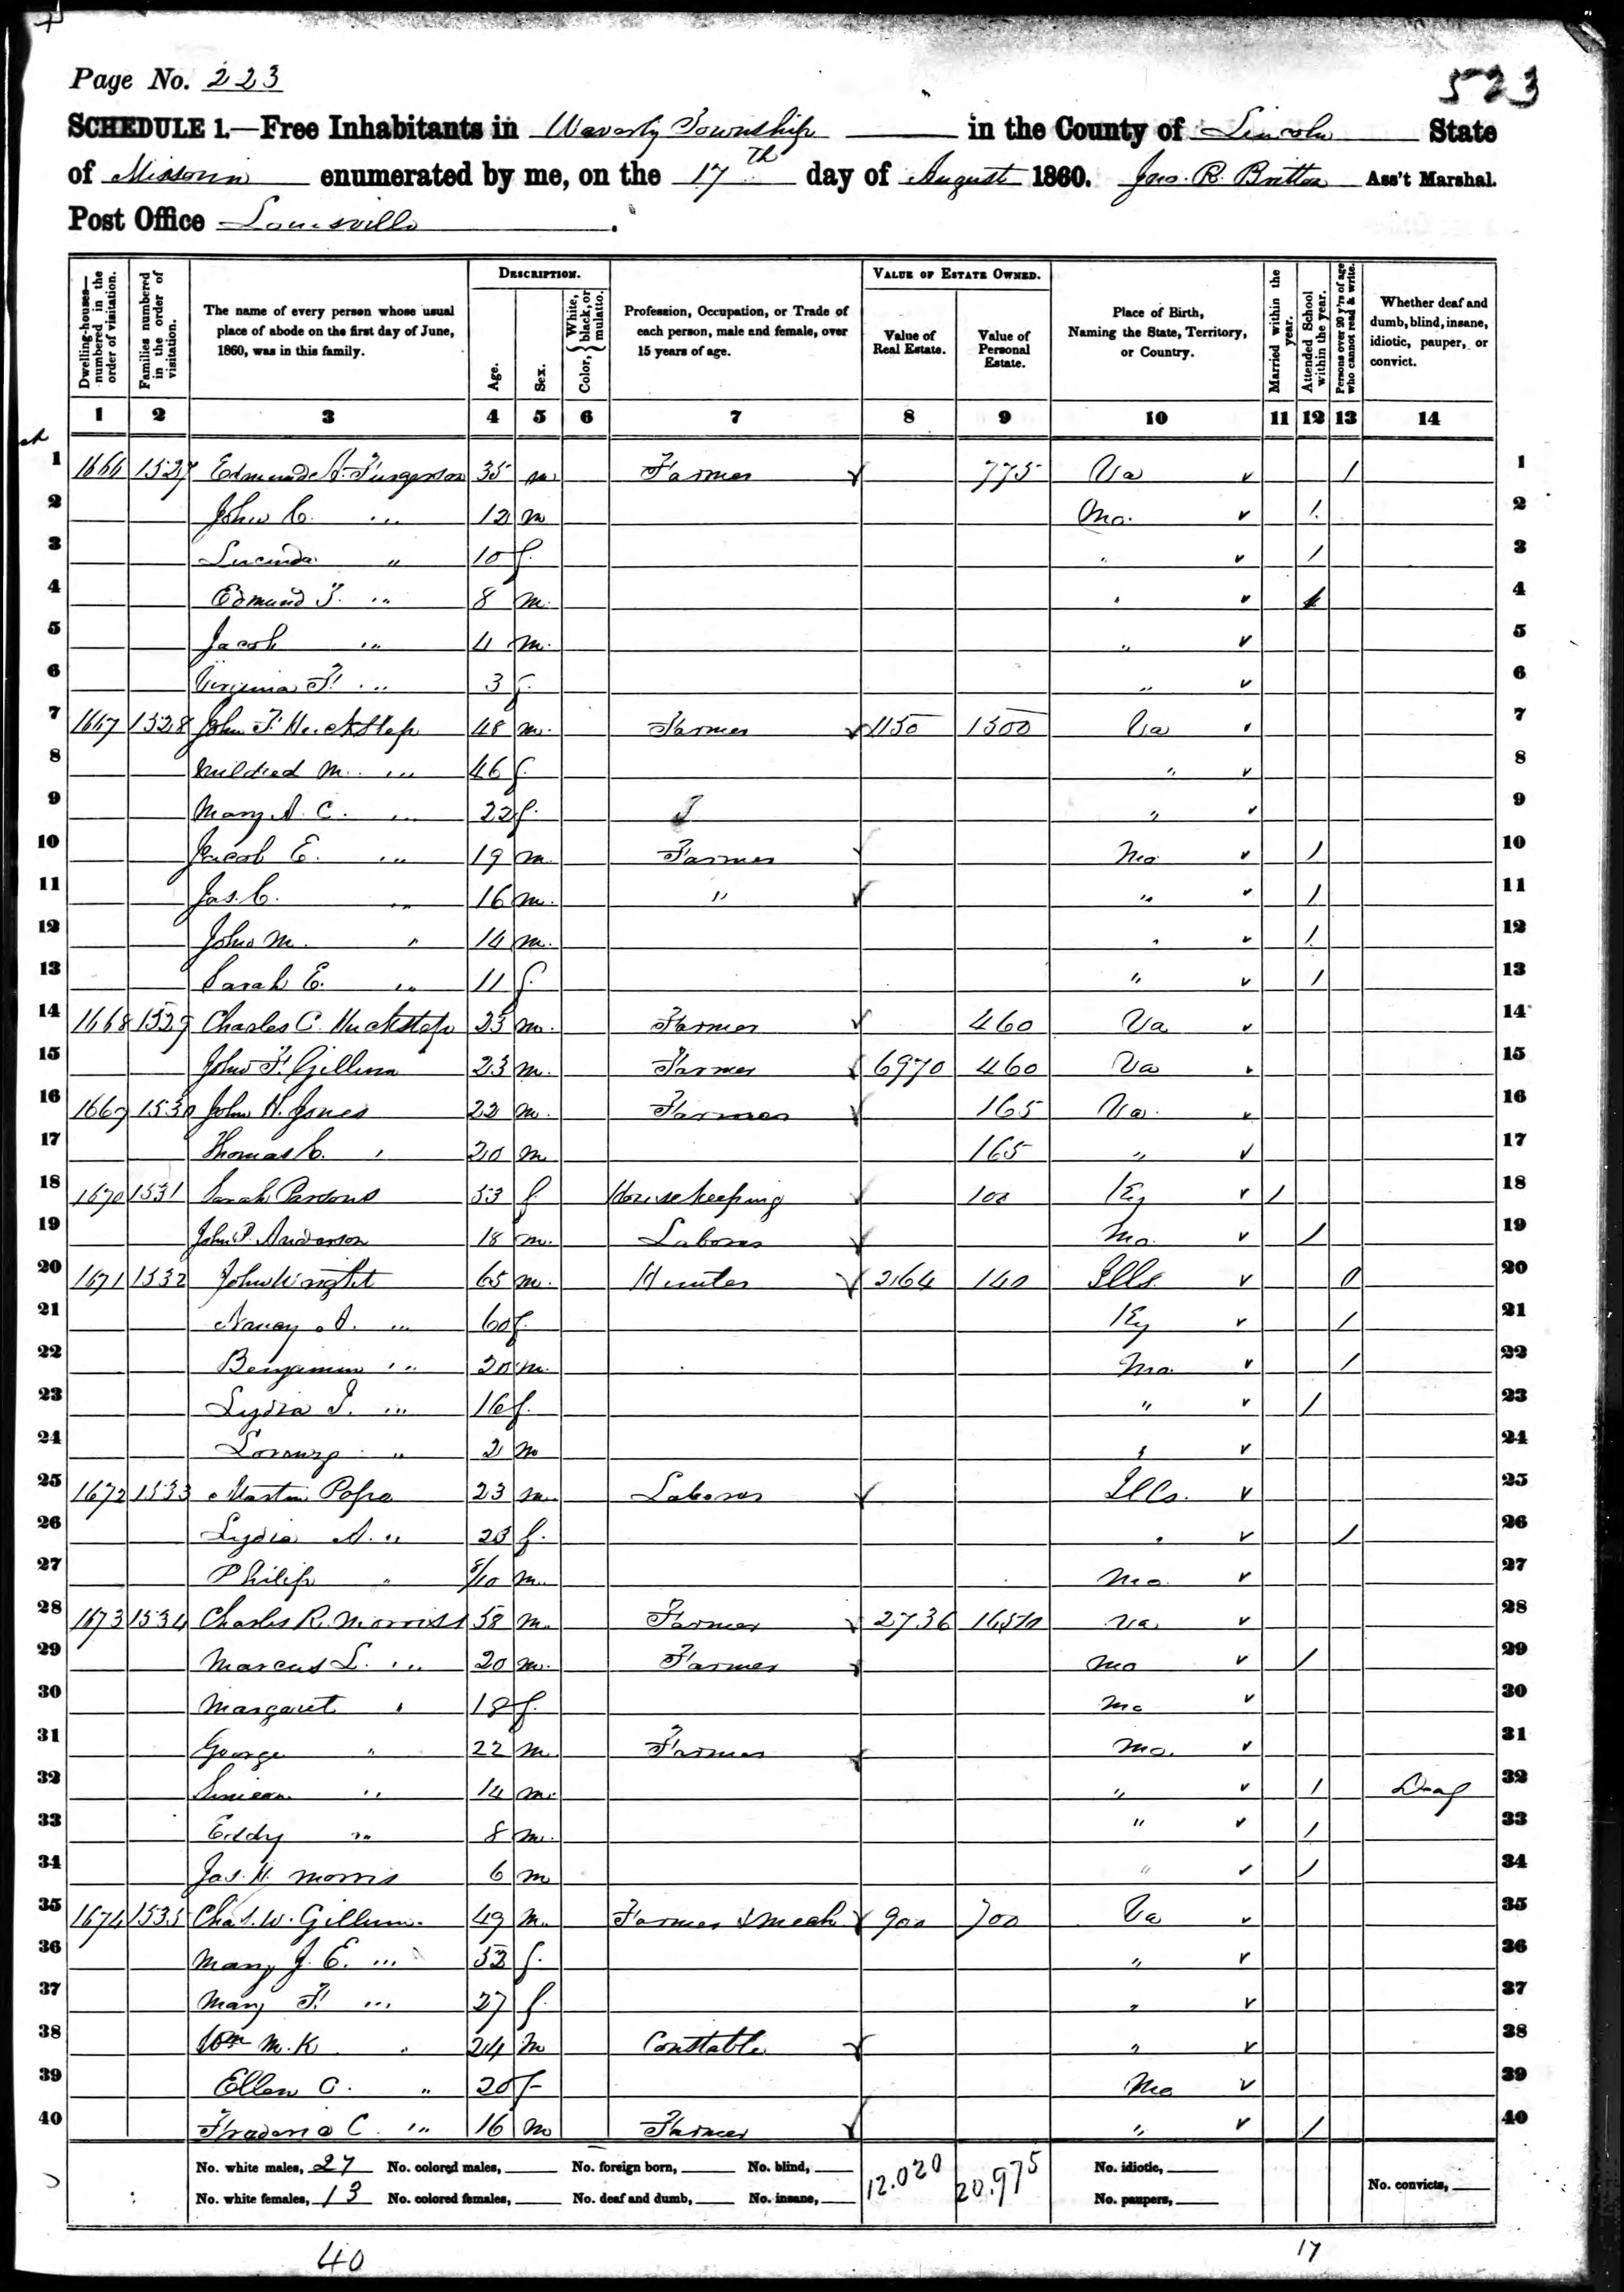 Page No. 223
523
SCHEDULE 1.—Free Inhabitants in Waverly Township in the County of Lincoln State
of Missouri enumerated by me, on the 17th day of August 1860. Jno. R. Britton Ass't Marshal.
Post Office Louisville.
DESCRIPTION. VALUE OF ESTATE OWNED.
Dwelling-houses—numbered in the order of visitation. Families numbered in the order of visitation. The name of every person whose usual place of abode on the first day of June, 1860, was in this family. Age. Sex. Color, { White, black, or mulatto. Profession, Occupation, or Trade of each person, male and female, over 15 years of age. Value of Real Estate. Value of Personal Estate. Place of Birth, Naming the State, Territory, or Country. Married within the year. Attended School within the year. Persons over 20 y'rs of age who cannot read & write. Whether deaf and dumb, blind, insane, idiotic, pauper, or convict.
1 2 3 4 5 6 7 8 9 10 11 12 13 14
1 1666 1527 Edmund A. Furgerson 35 m Farmer 775 Va 1 1
2 John C. " 12 m Mo. 1 2
3 Lucinda " 10 f. " 1 3
4 Edmund T. " 8 m. " 1 4
5 Jacob " 4 m. " 5
6 Virginia F. " 3 f. " 6
7 1667 1528 John F. Huckstep 48 m. Farmer 1150 1500 Va 7
8 Mildred M. " 46 f. " 8
9 Mary A. C. " 22 f. " 9
10 Jacob E. " 19 m. Farmer Mo 1 10
11 Jas. C. " 16 m. " " 1 11
12 John M. " 14 m. " 1 12
13 Sarah E. " 11 f. " 1 13
14 1668 1529 Charles C. Huckstep 23 m. Farmer 460 Va 14
15 John F. Gillum 23 m. Farmer 6970 460 Va 15
16 1669 1530 John H. Jones 22 m. Farmer 165 Va. 16
17 Thomas C. " 20 m 165 " 17
18 1670 1531 Sarah Parsons 53 f. Housekeeping 100 Ky 1 18
19 John P. Anderson 18 m. Laborer Mo. 1 19
20 1671 1532 John Wright 65 m. Hunter 264 140 Ills. 0 20
21 Nancy A. " 60 f. Ky 1 21
22 Benjamin " 20 m. Mo. 1 22
23 Lydia J. " 16 f. " 1 23
24 Lorenzo " 2 m " 24
25 1672 1533 Martin Pope 23 m. Laborer Ills. 25
26 Lydia A. " 23 f. " 1 26
27 Philip " 8/10 m. Mo. 27
28 1673 1534 Charles R. Morriss 58 m. Farmer 2736 Va. 28
29 Marcus L. " 20 m. Farmer Mo 1 29
30 Margaret " 18 f. Mo 30
31 George " 22 m. Farmer Mo. 31
32 Simeon " 14 m. " 1 Deaf 32
33 Eddy " 8 m. " 1 33
34 Jas. H. Morris 6 m " 1 34
35 1674 1535 Chas. W. Gillum. 49 m. Farmer & Mech 900 700 Va 35
36 Mary J. E. " 52 f. " 36
37 Mary F. " 27 f. " 37
38 Wm M. K " 24 m Constable " 38
39 Ellen C. " 20 f Mo 39
40 C. " 16 m Farmer " 1 40
No. white males, 27 No. colored males, No. foreign born, No. blind, 12.020 20.975 No. idiotic,
No. white females, 13 No. colored females, No. deaf and dumb, No. insane, No. paupers, No. convicts,
40 17